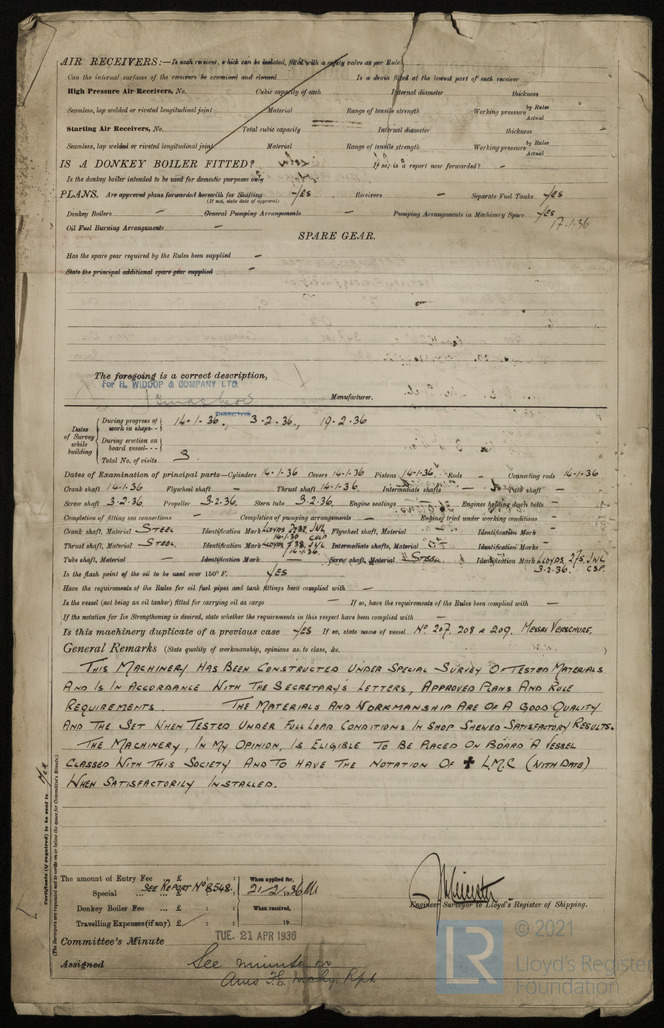 AIR RECEIVERS:—Is each receiver, which can be isolated, fitted with a safety valve as per Rule
Can the internal surfaces of the receivers be examined and cleaned Is a drain fitted at the lowest part of each receiver
High Pressure Air Receivers, No. Cubic capacity of each Internal diameter thickness
Seamless, lap welded or riveted longitudinal joint Material Range of tensile strength Working pressure by Rules Actual
Starting Air Receivers, No. Total cubic capacity Internal diameter thickness
Seamless, lap welded or riveted longitudinal joint Material Range of tensile strength Working pressure by Rules Actual
IS A DONKEY BOILER FITTED? If so, is a report now forwarded? -
Is the donkey boiler intended to be used for domestic purposes only
PLANS. Are approved plans forwarded herewith for Shafting YES Receivers - Separate Fuel Tanks YES
(If not, state date of approval)
Donkey Boilers - General Pumping Arrangements - Pumping Arrangements in Machinery Space YES
Oil Fuel Burning Arrangements - 17.1.36
SPARE GEAR.
Has the spare gear required by the Rules been supplied -
State the principal additional spare gear supplied -
The foregoing is a correct description,
For H. WIDDOP & COMPANY LTD.
DIRECTOR Manufacturer.
Dates of Survey while building
During progress of work in shops - - 14-1-36., 3-2-36., 19-2-36
During erection on board vessel - - -
Total No. of visits 3.
Dates of Examination of principal parts—Cylinders 14-1-36 Covers 14-1-36 Pistons 14-1-36. Rods - Connecting rods 14-1-36
Crank shaft 14-1-36 Flywheel shaft - Thrust shaft 14-1-36. Intermediate shafts - Tube shaft -
Screw shaft 3-2-36. Propeller 3-2-36. Stern tube 3-2-36. Engine seatings - Engines holding down bolts -
Completion of fitting sea connections - Completion of pumping arrangements - Engines tried under working conditions -
Crank shaft, Material STEEL Identification Mark LLOYDS 7738, JNL 14-1-36 CSP Flywheel shaft, Material - Identification Mark -
Thrust shaft, Material STEEL. Identification Mark LLOYDS 738, JNL 14-1-36. Intermediate shafts, Material - Identification Marks -
Tube shaft, Material - Identification Mark - Screw shaft, Material STEEL Identification Mark LLOYDS 2/5, JNL
3-2-36. CSP.
Is the flash point of the oil to be used over 150° F. YES
Have the requirements of the Rules for oil fuel pipes and tank fittings been complied with -
Is the vessel (not being an oil tanker) fitted for carrying oil as cargo - If so, have the requirements of the Rules been complied with -
If the notation for Ice Strengthening is desired, state whether the requirements in this respect have been complied with -
Is this machinery duplicate of a previous case YES If so, state name of vessel NO. 207, 208 & 209, MESSRS VERSCHURE,
General Remarks (State quality of workmanship, opinions as to class, &c. )
THIS MACHINERY HAS BEEN CONSTRUCTED UNDER SPECIAL SURVEY OF TESTED MATERIALS
AND IS IN ACCORDANCE WITH THE SECRETARY'S LETTERS, APPROVED PLANS AND RULE
REQUIREMENTS. THE MATERIALS AND WORKMANSHIP ARE OF A GOOD QUALITY
AND THE SET WHEN TESTED UNDER FULL LOAD CONDITIONS IN SHOP SHEWED SATISFACTORY RESULTS.
THE MACHINERY, IN MY OPINION, IS ELIGIBLE TO BE PLACED ON BOARD A VESSEL
CLASSED WITH THIS SOCIETY AND TO HAVE THE NOTATION OF ✠ LMC (WITH DATE)
WHEN SATISFACTORILY INSTALLED.
Certificate (if required) to be sent to
(The Surveyors are requested not to write on or below the space for Committee's Minute.)
The amount of Entry Fee .. £ : : When applied for,
Special ... ... £ SEE REPORT NO 8548. : 21-2-1936
Donkey Boiler Fee ... £ : : When received,
Travelling Expenses (if any) £ : : 19
Engineer Surveyor to Lloyd's Register of Shipping.
Committee's Minute TUE. 21 APR 1936
Assigned See minute on
Ams F.E. Mchy. Rpt
© 2021
LR
Lloyd's Register
Foundation